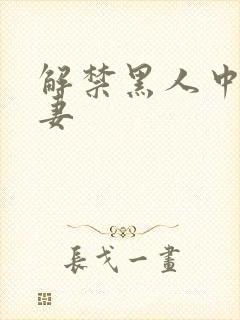 解禁黑人中
妻
長戈一畫